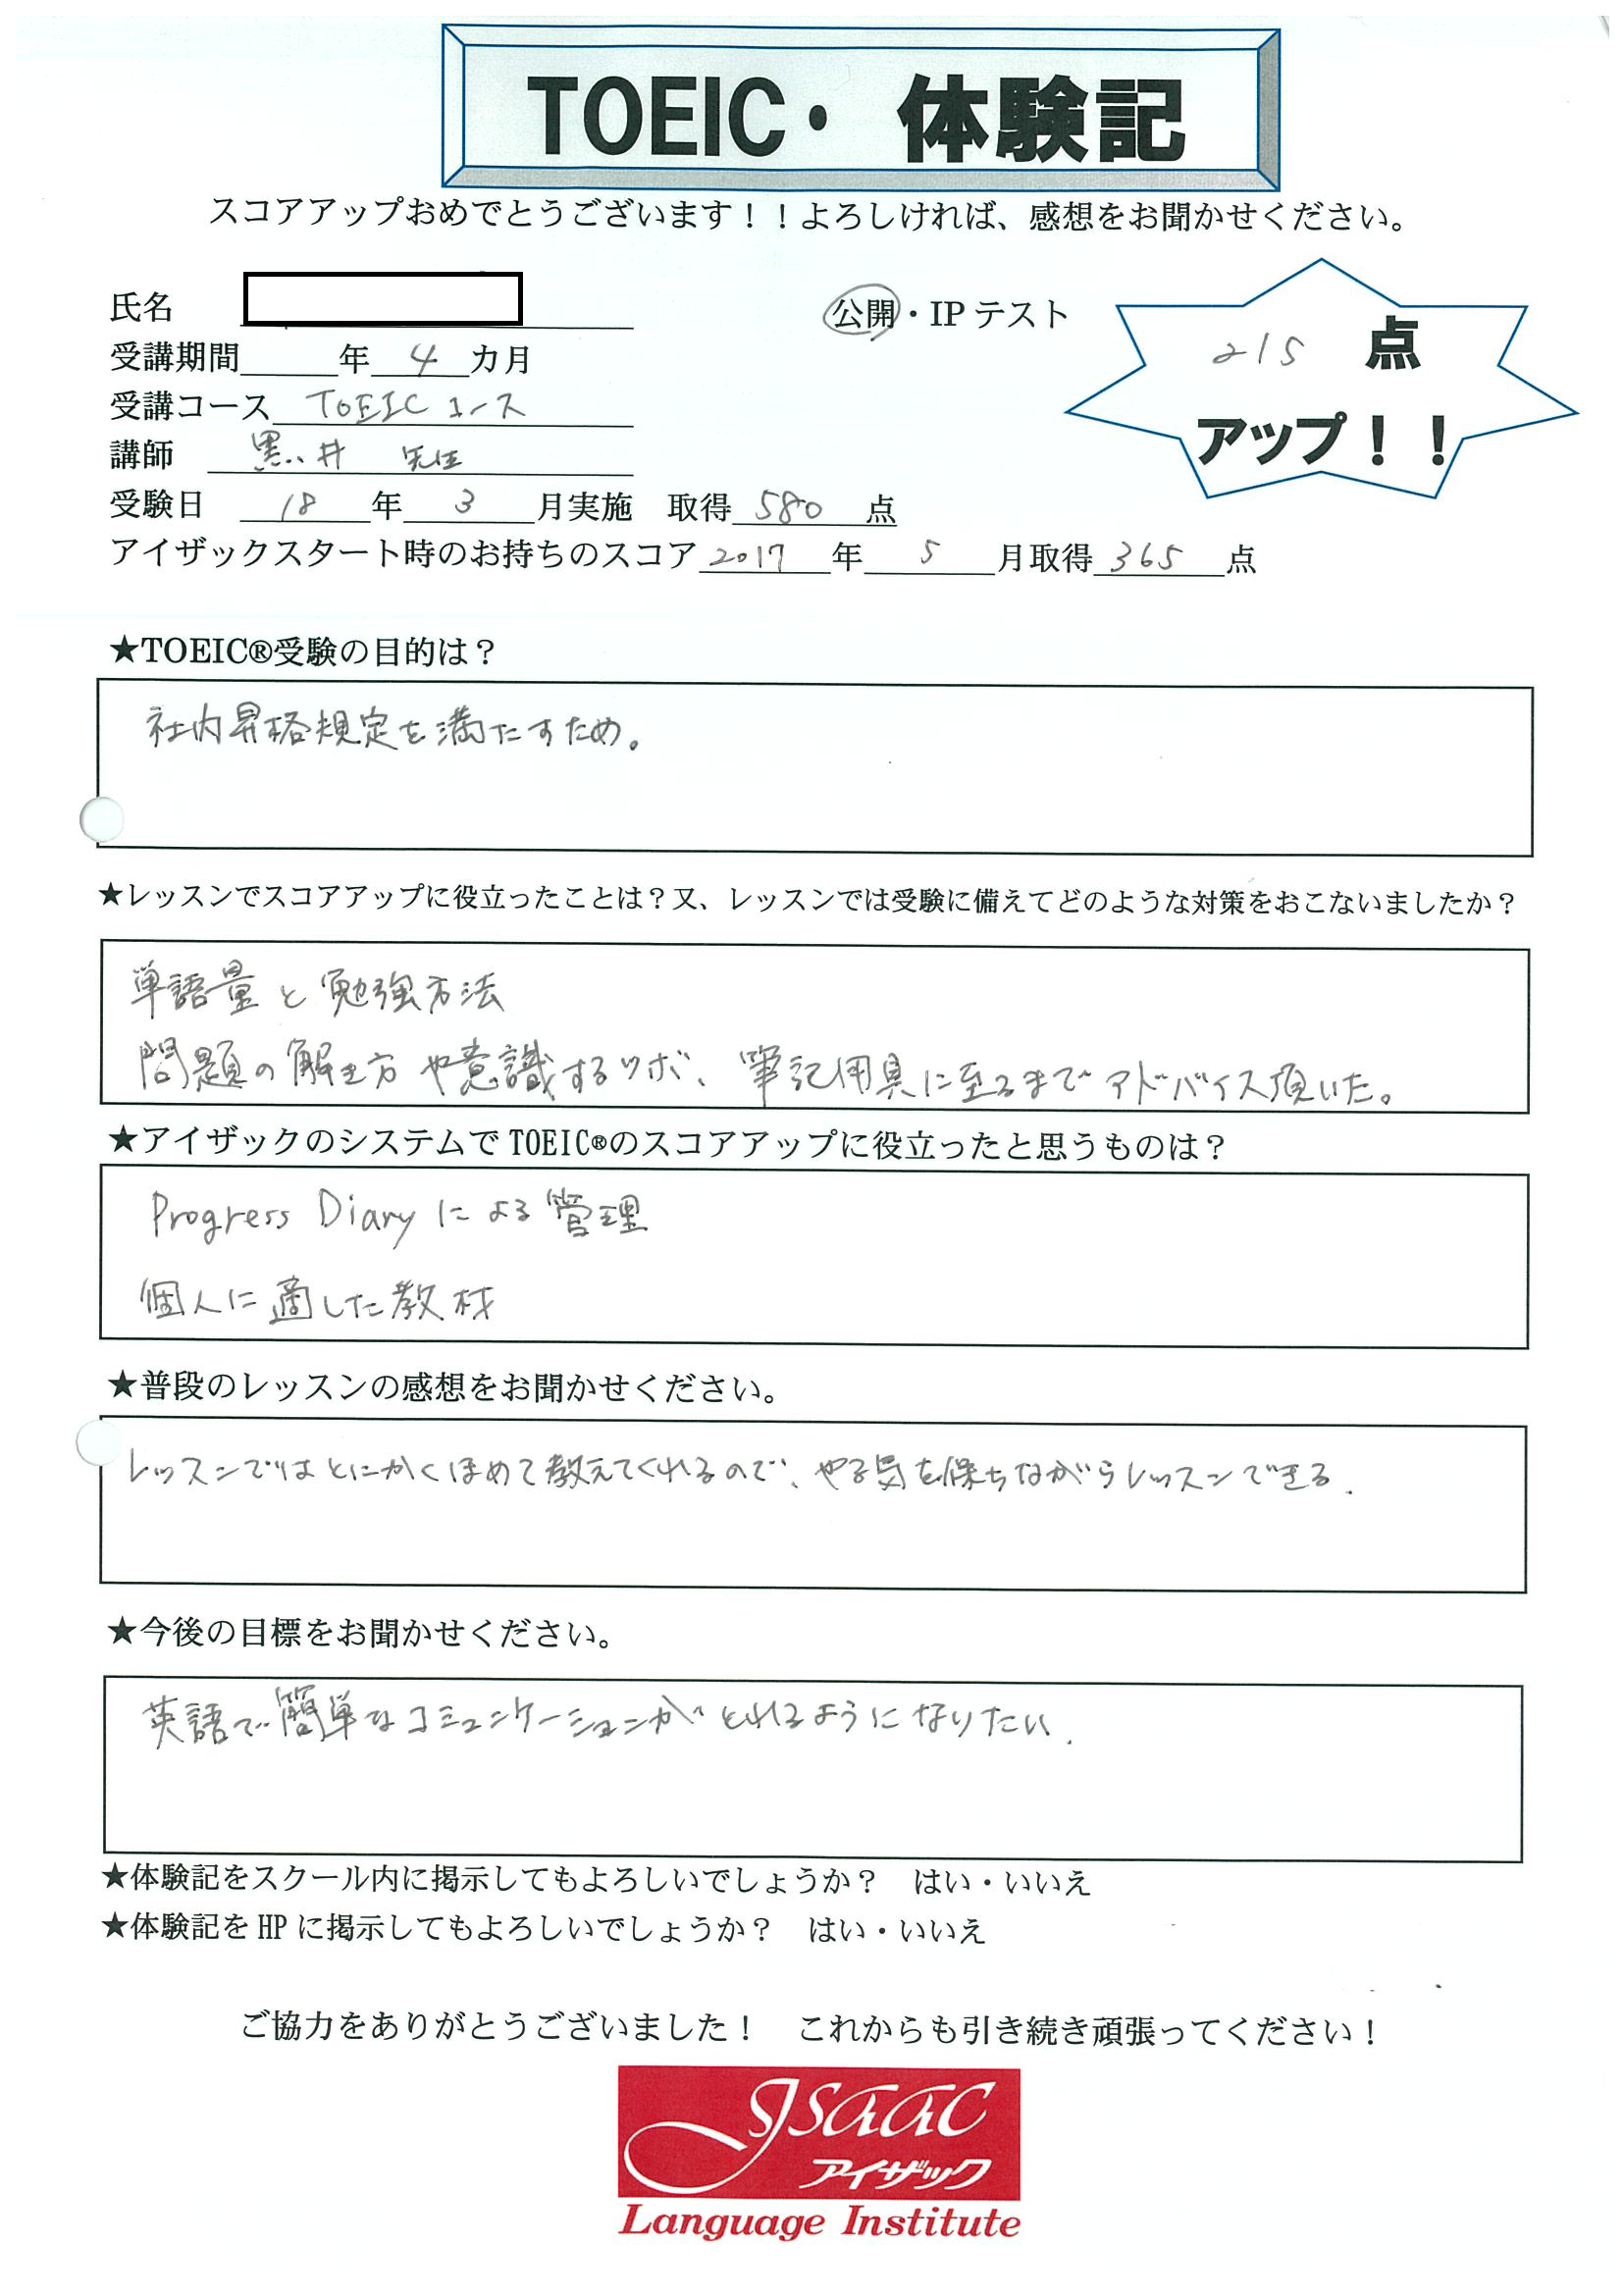 TOEIC・ 体験記
スコアアップおめでとうございます！！よろしければ、感想をお聞かせください。
氏名
公開・IPテスト
215 点
アップ！！
受講期間 年 4 カ月
受講コース TOEIC コース
講師 黒井 先生
受験日 18 年 3 月実施 取得 580 点
アイザックスタート時のお持ちのスコア 2017 年 5 月取得 365 点
★TOEIC®受験の目的は？
社内昇格規定を満たすため。
★レッスンでスコアアップに役立ったことは？又、レッスンでは受験に備えてどのような対策をおこないましたか？
単語量と勉強方法
問題の解き方や意識するツボ、筆記用具に至るまでアドバイス頂いた。
★アイザックのシステムでTOEIC®のスコアアップに役立ったと思うものは？
Progress Diaryによる管理
個人に適した教材
★普段のレッスンの感想をお聞かせください。
レッスンではとにかくほめて教えてくれるので、やる気を保ちながらレッスンできる.
★今後の目標をお聞かせください。
英語で簡単なコミュニケーションがとれるようになりたい.
★体験記をスクール内に掲示してもよろしいでしょうか？ はい・いいえ
★体験記をHPに掲示してもよろしいでしょうか？ はい・いいえ
ご協力をありがとうございました！ これからも引き続き頑張ってください！
Isaac
アイザック
Language Institute